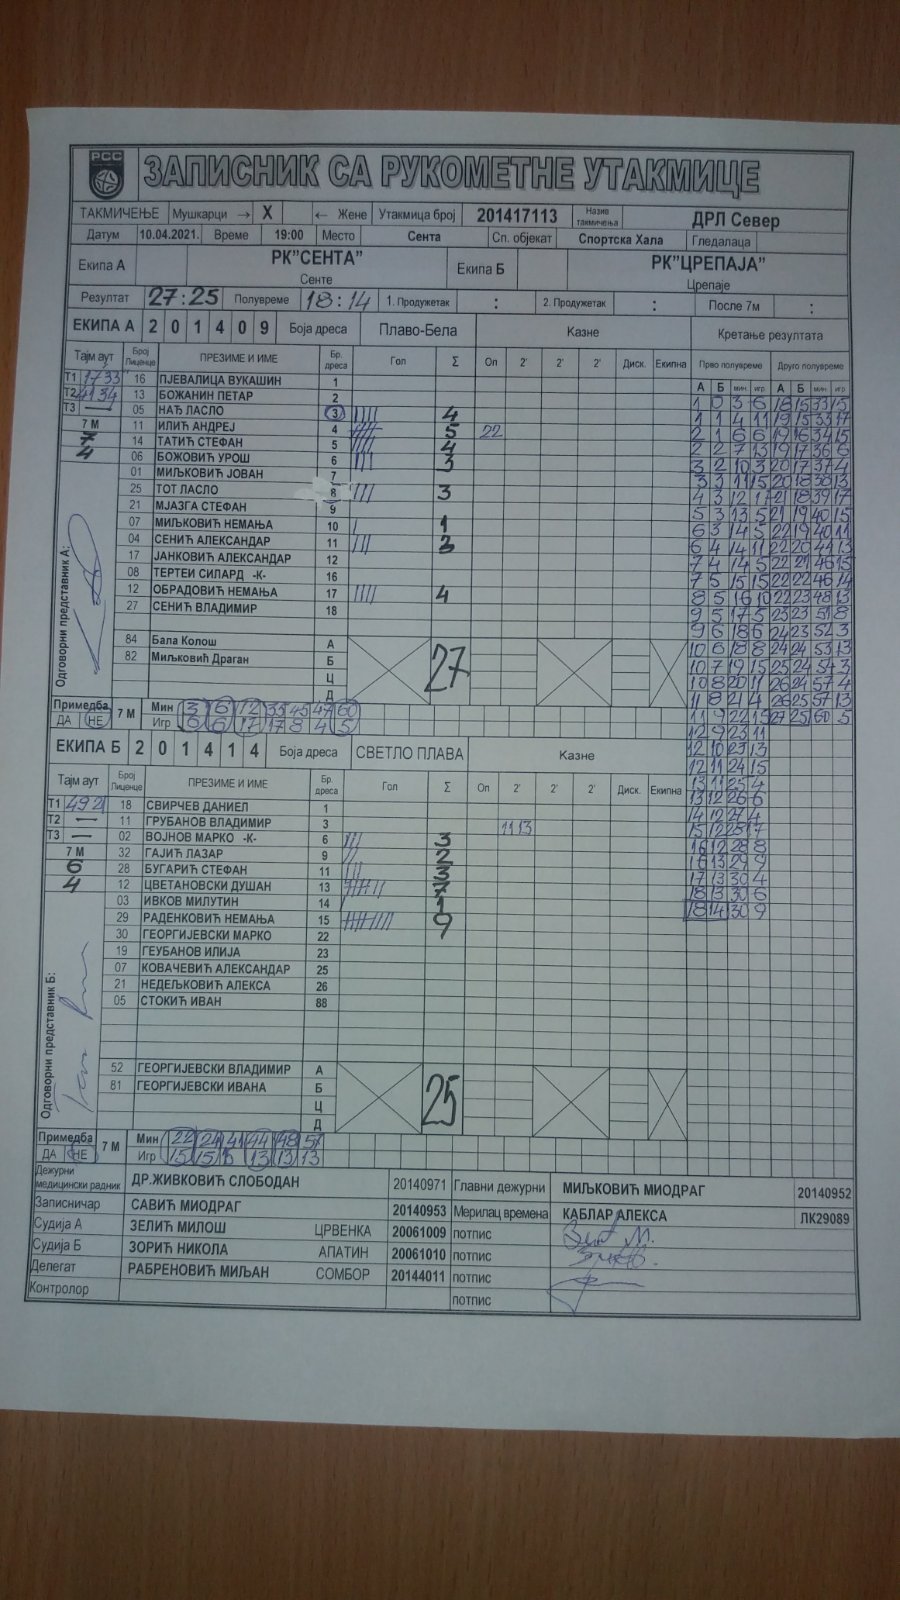 РСС
ЗАПИСНИК СА РУКОМЕТНЕ УТАКМИЦЕ
ТАКМИЧЕЊЕ Мушкарци → X ← Жене Утакмица број 201417113 Назив такмичења ДРЛ Север
Датум 10.04.2021. Време 19:00 Место Сента Сп. објекат Спортска Хала Гледалаца
Екипа А РК"СЕНТА" Екипа Б РК"ЦРЕПАЈА"
Сенте Црепаје
Резултат 27:25 Полувреме 18:14 1. Продужетак : 2. Продужетак : После 7м :
ЕКИПА А 2 0 1 4 0 9 Боја дреса Плаво-Бела Казне Кретање резултата
Тајм аут Број Лиценце ПРЕЗИМЕ И ИМЕ Бр. дреса Гол Σ Оп 2' 2' 2' Диск. Екипна Прво полувреме Друго полувреме
А Б мин. игр. А Б мин. игр.
Т1 1733 16 ПЈЕВАЛИЦА ВУКАШИН 1
Т2 4134 13 БОЖАНИН ПЕТАР 2
Т3 — 05 НАЂ ЛАСЛО 3 4
7 М 11 ИЛИЋ АНДРЕЈ 4 5 22
7 14 ТАТИЋ СТЕФАН 5 4
4 06 БОЖОВИЋ УРОШ 6 3
01 МИЉКОВИЋ ЈОВАН 7
25 ТОТ ЛАСЛО 8 3
21 МЈАЗГА СТЕФАН 9
07 МИЉКОВИЋ НЕМАЊА 10 1
04 СЕНИЋ АЛЕКСАНДАР 11 3
17 ЈАНКОВИЋ АЛЕКСАНДАР 12
08 ТЕРТЕИ СИЛАРД -К- 16
12 ОБРАДОВИЋ НЕМАЊА 17 4
27 СЕНИЋ ВЛАДИМИР 18
Одговорни представник А:
84 Бала Колош А
82 Миљковић Драган Б
Ц
Д
27
1 0 3 6 18 15 33 15
1 1 4 11 19 15 33 17
2 1 6 6 19 16 34 15
2 2 7 13 19 17 36 6
3 2 10 3 20 17 37 4
3 3 11 15 20 18 38 13
4 3 12 17 21 18 39 17
5 3 13 5 21 19 40 15
6 3 14 5 22 19 40 11
6 4 14 11 22 20 44 13
7 4 14 5 22 21 46 15
7 5 15 15 22 22 46 14
8 5 16 10 22 23 48 13
9 5 17 5 23 23 51 8
9 6 18 6 24 23 52 3
10 6 18 8 24 24 53 13
10 7 19 15 25 24 54 3
10 8 20 11 26 24 57 4
11 8 21 4 26 25 57 13
11 9 22 15 27 25 60 5
12 9 23 11
12 10 23 13
12 11 24 15
13 11 25 4
13 12 26 6
14 12 27 4
15 12 28 17
16 12 28 8
16 13 29 9
17 13 30 4
18 13 30 6
18 14 30 9
Примедба 7 М Мин 3 16 12 33 45 47 60
ДА НЕ Игр 6 6 17 17 8 4 5
ЕКИПА Б 2 0 1 4 1 4 Боја дреса СВЕТЛО ПЛАВА Казне
Тајм аут Број Лиценце ПРЕЗИМЕ И ИМЕ Бр. дреса Гол Σ Оп 2' 2' 2' Диск. Екипна
Т1 4921 18 СВИРЧЕВ ДАНИЕЛ 1
Т2 — 11 ГРУБАНОВ ВЛАДИМИР 3 1113
Т3 — 02 ВОЈНОВ МАРКО -К- 6 3
7 М 32 ГАЈИЋ ЛАЗАР 9 2
6 28 БУГАРИЋ СТЕФАН 11 3
4 12 ЦВЕТАНОВСКИ ДУШАН 13 7
03 ИВКОВ МИЛУТИН 14 1
29 РАДЕНКОВИЋ НЕМАЊА 15 9
30 ГЕОРГИЈЕВСКИ МАРКО 22
19 ГЕУБАНОВ ИЛИЈА 23
07 КОВАЧЕВИЋ АЛЕКСАНДАР 25
21 НЕДЕЉКОВИЋ АЛЕКСА 26
05 СТОКИЋ ИВАН 88
Одговорни представник Б:
52 ГЕОРГИЈЕВСКИ ВЛАДИМИР А
81 ГЕОРГИЈЕВСКИ ИВАНА Б
Ц
Д
25
Примедба 7 М Мин 22 24 41 44 48 57
ДА НЕ Игр 15 15 15 13 13 13
Дежурни медицински радник ДР.ЖИВКОВИЋ СЛОБОДАН 20140971 Главни дежурни МИЉКОВИЋ МИОДРАГ 20140952
Записничар САВИЋ МИОДРАГ 20140953 Мерилац времена КАБЛАР АЛЕКСА ЛК29089
Судија А ЗЕЛИЋ МИЛОШ ЦРВЕНКА 20061009 потпис
Судија Б ЗОРИЋ НИКОЛА АПАТИН 20061010 потпис
Делегат РАБРЕНОВИЋ МИЉАН СОМБОР 20144011 потпис
Контролор потпис